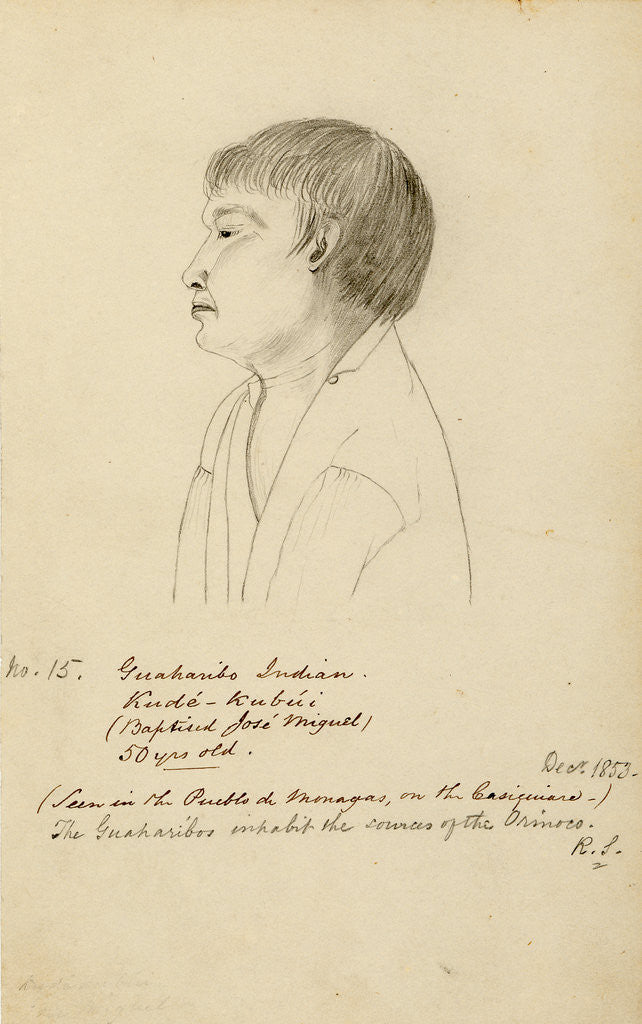 No. 15. Guaharibo Indian.
Kudé-Kubúi
(Baptised José Miguel)
50 yrs old.
Decr. 1853.
(Seen in the Pueblo de Monagas, on the Casiquiare-)
The Guaharibos inhabit the sources of the Orinoco.
R. S.
Miguel